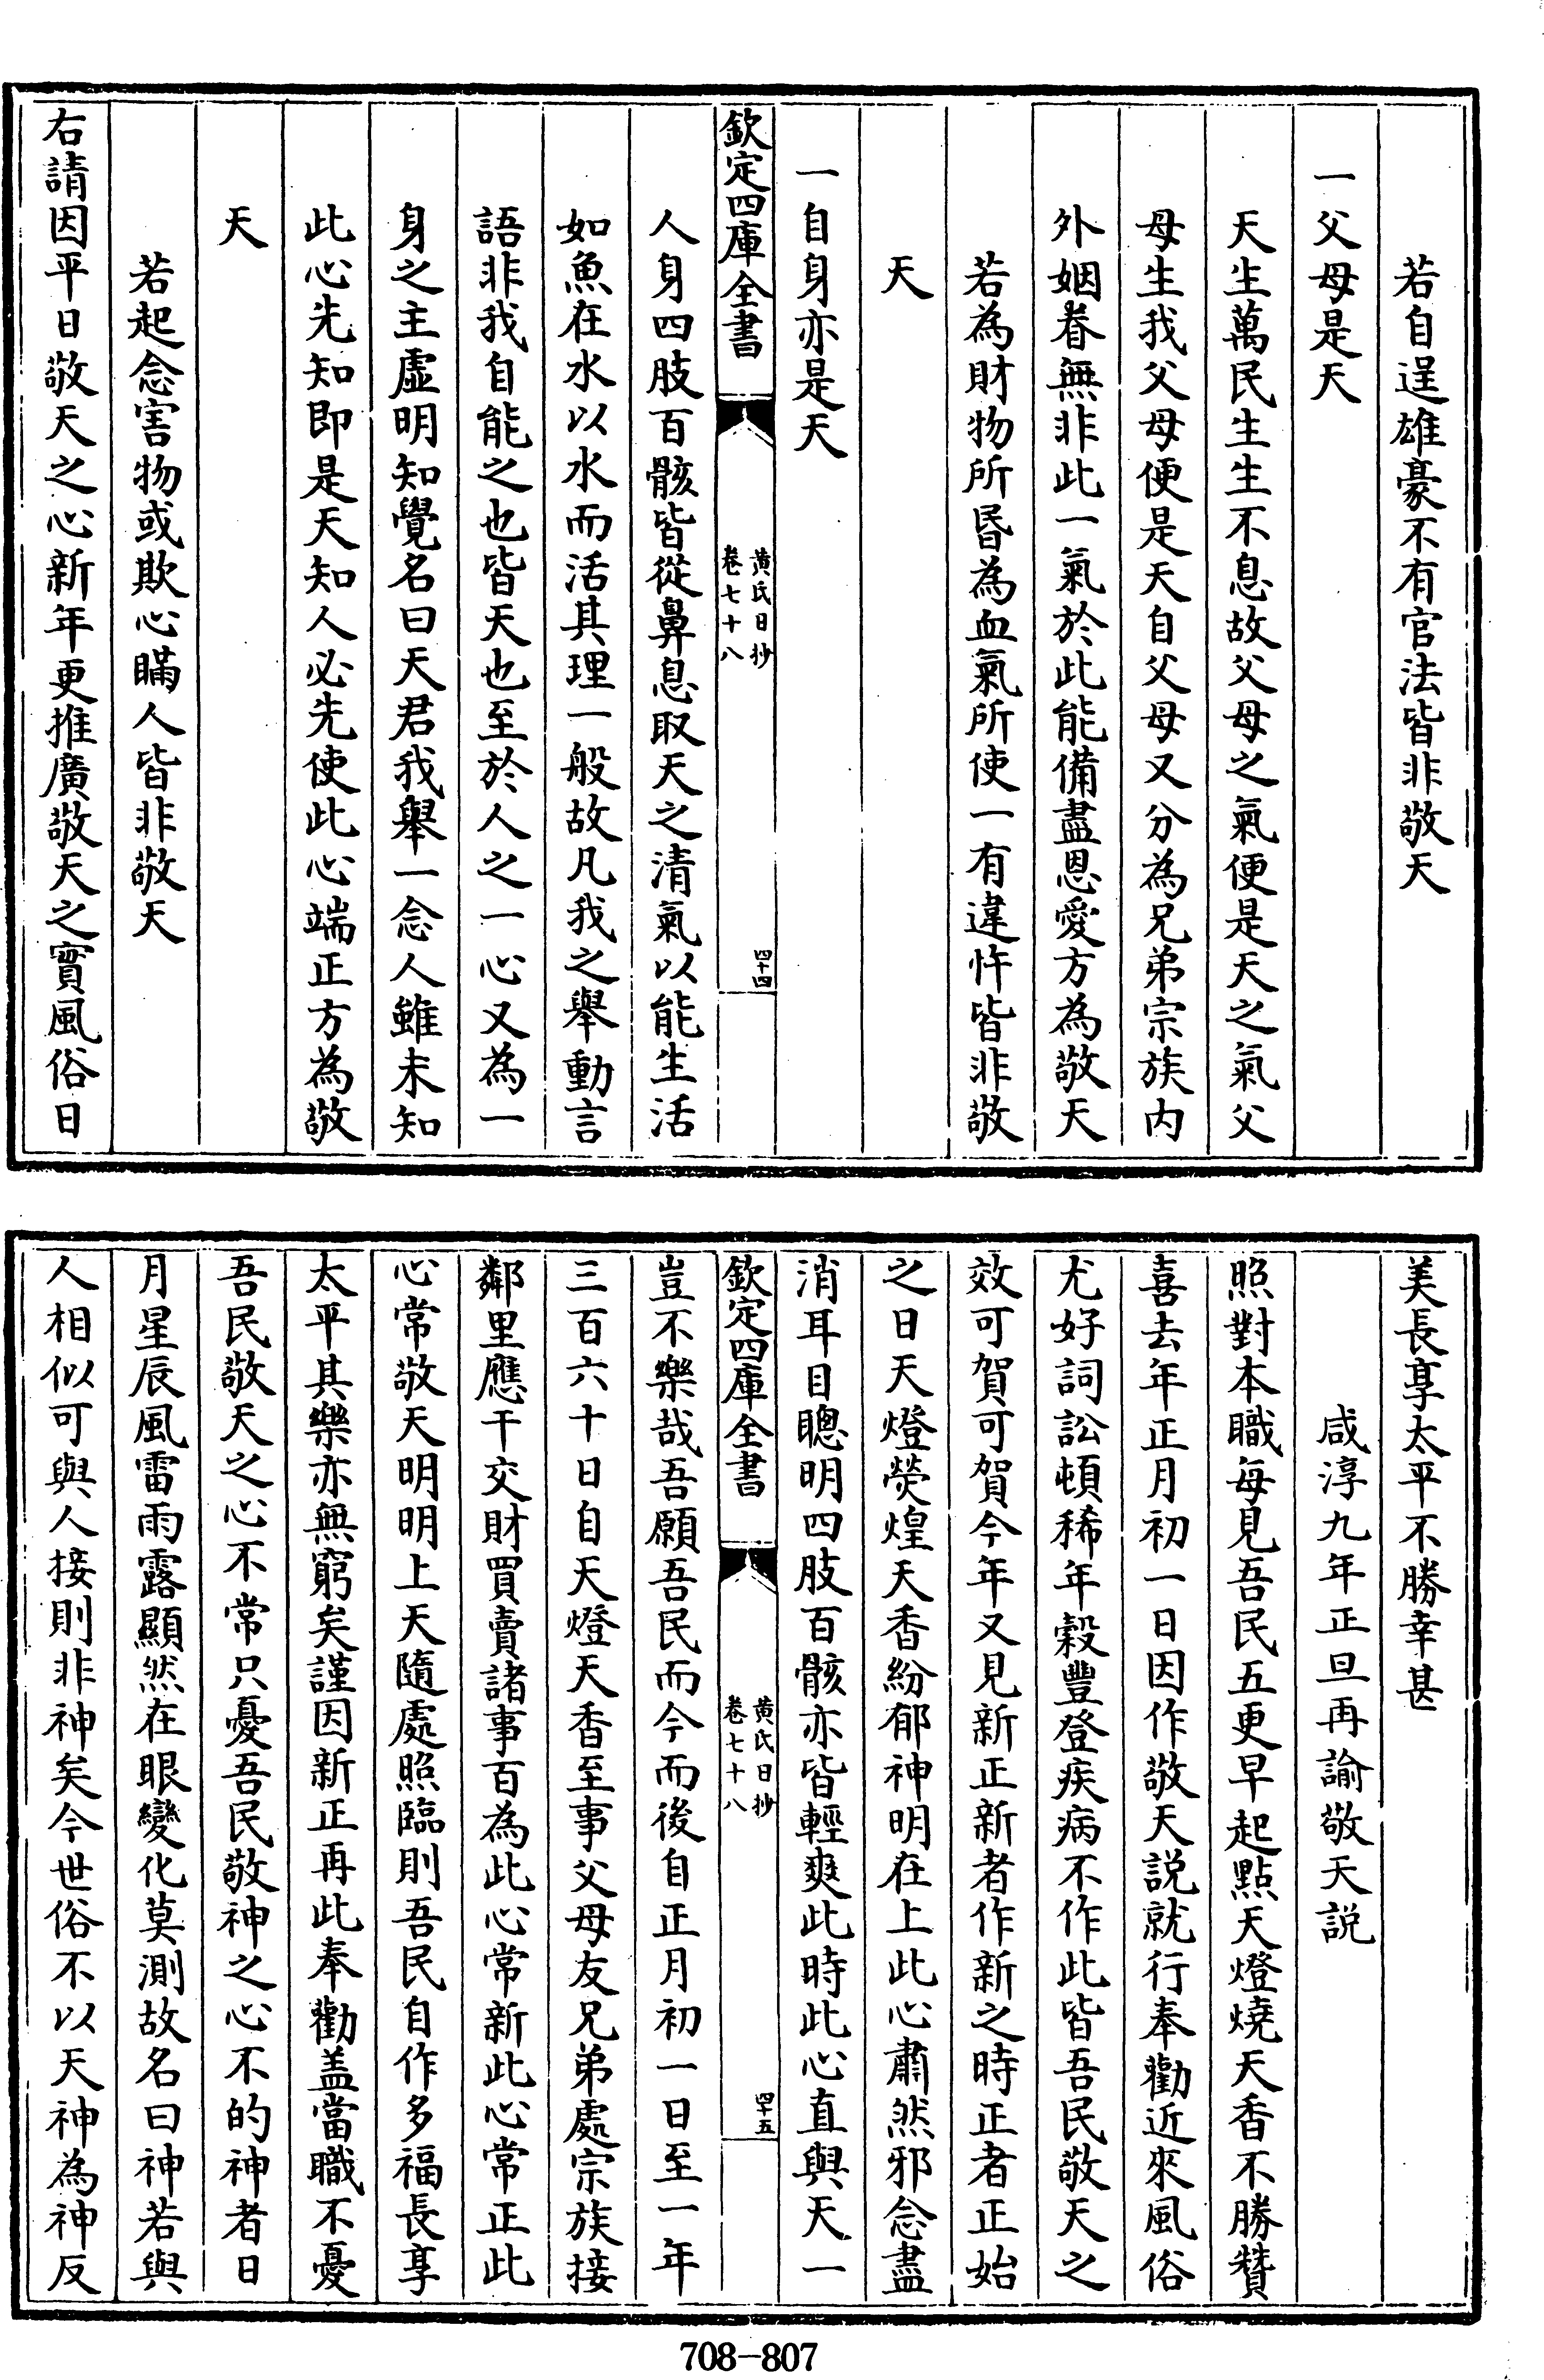 若自逞雄豪不有官法皆非敬天
一父母是天
天生萬民生生不息故父母之氣便是天之氣父
母生我父母便是天自父母又分為兄弟宗族内
外姻眷無非此一氣於此能備盡恩愛方為敬天
若為財物所昏為血氣所使一有違忤皆非敬
天
一自身亦是天
欽定四庫全書
黄氏日抄
卷七十八
四十四
人身四肢百骸皆從鼻息取天之清氣以能生活
如魚在水以水而活其理一般故凡我之舉動言
語非我自能之也皆天也至於人之一心又為一
身之主虚明知覺名曰天君我舉一念人雖未知
此心先知即是天知人必先使此心端正方為敬
天
若起念害物或欺心瞞人皆非敬天
右請因平日敬天之心新年更推廣敬天之實風俗日
美長享太平不勝幸甚
咸淳九年正旦再諭敬天説
照對本職每見吾民五更早起點天燈燒天香不勝贊
喜去年正月初一日因作敬天説就行奉勸近來風俗
尤好詞訟頓稀年穀豐登疾病不作此皆吾民敬天之
效可賀可賀今年又見新正新者作新之時正者正始
之日天燈熒煌天香紛郁神明在上此心肅然邪念盡
消耳目聰明四肢百骸亦皆輕爽此時此心直與天一
欽定四庫全書
黄氏日抄
卷七十八
四十五
豈不樂哉吾願吾民而今而後自正月初一日至一年
三百六十日自天燈天香至事父母友兄弟處宗族接
鄰里應干交財買賣諸事百為此心常新此心常正此
心常敬天明明上天隨處照臨則吾民自作多福長享
太平其樂亦無窮矣謹因新正再此奉勸盖當職不憂
吾民敬天之心不常只憂吾民敬神之心不的神者日
月星辰風雷雨露顯然在眼變化莫測故名曰神若與
人相似可與人接則非神矣今世俗不以天神為神反
708-807